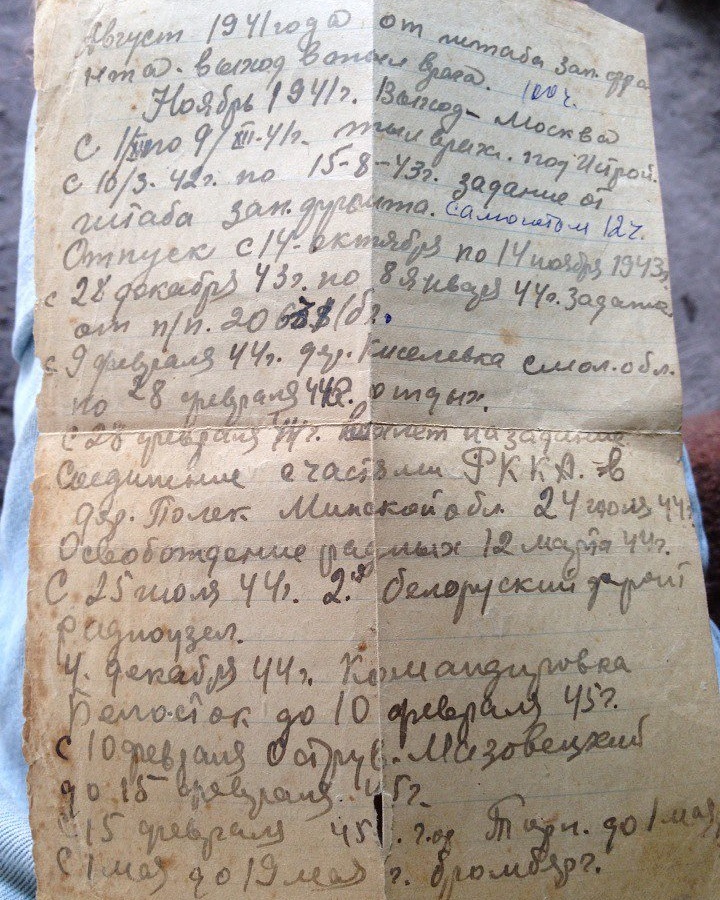 Август 1941 года от штаба зап. фро
нта. выход в тыл врага. 100 ч.
Ноябрь 1941 г. Выход - Москва
С 1/XII по 9/XII-41 г. тыл врага. под Истрой.
С 10/3. 42 г. по 15-8-43 г. задание от
штаба зап. фронта. самолетом 12 ч.
Отпуск с 14 октября по 14 ноября 1943 г.
с 28 декабря 43 г. по 8 января 44 г. Задание
от п/п. 20
с 9 февраля 44 г. дер. Киселевка смол. обл.
по 28 февраля 44 г. отдых.
с 28 февраля 44 г. вылет на задание
Соединение с частями РККА. в
дер. Полек Минской обл. 24 июля 44 г.
Освобождение родных 12 марта 44 г.
С 25 июля 44 г. 2.й белоруский фронт
радиоузел.
4. декабря 44 г. Командировка
Белосток до 10 февраля 45 г.
с 10 февраля Остру.-Мазовецкий
до 15 февраля 45 г.
С 15 февраля 45 г. гор Торн. до 1 мая
С 1 мая до 19 мая г. бромберг.